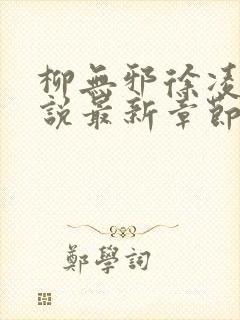 柳無邪徐凌
說最新章節
鄭學詞